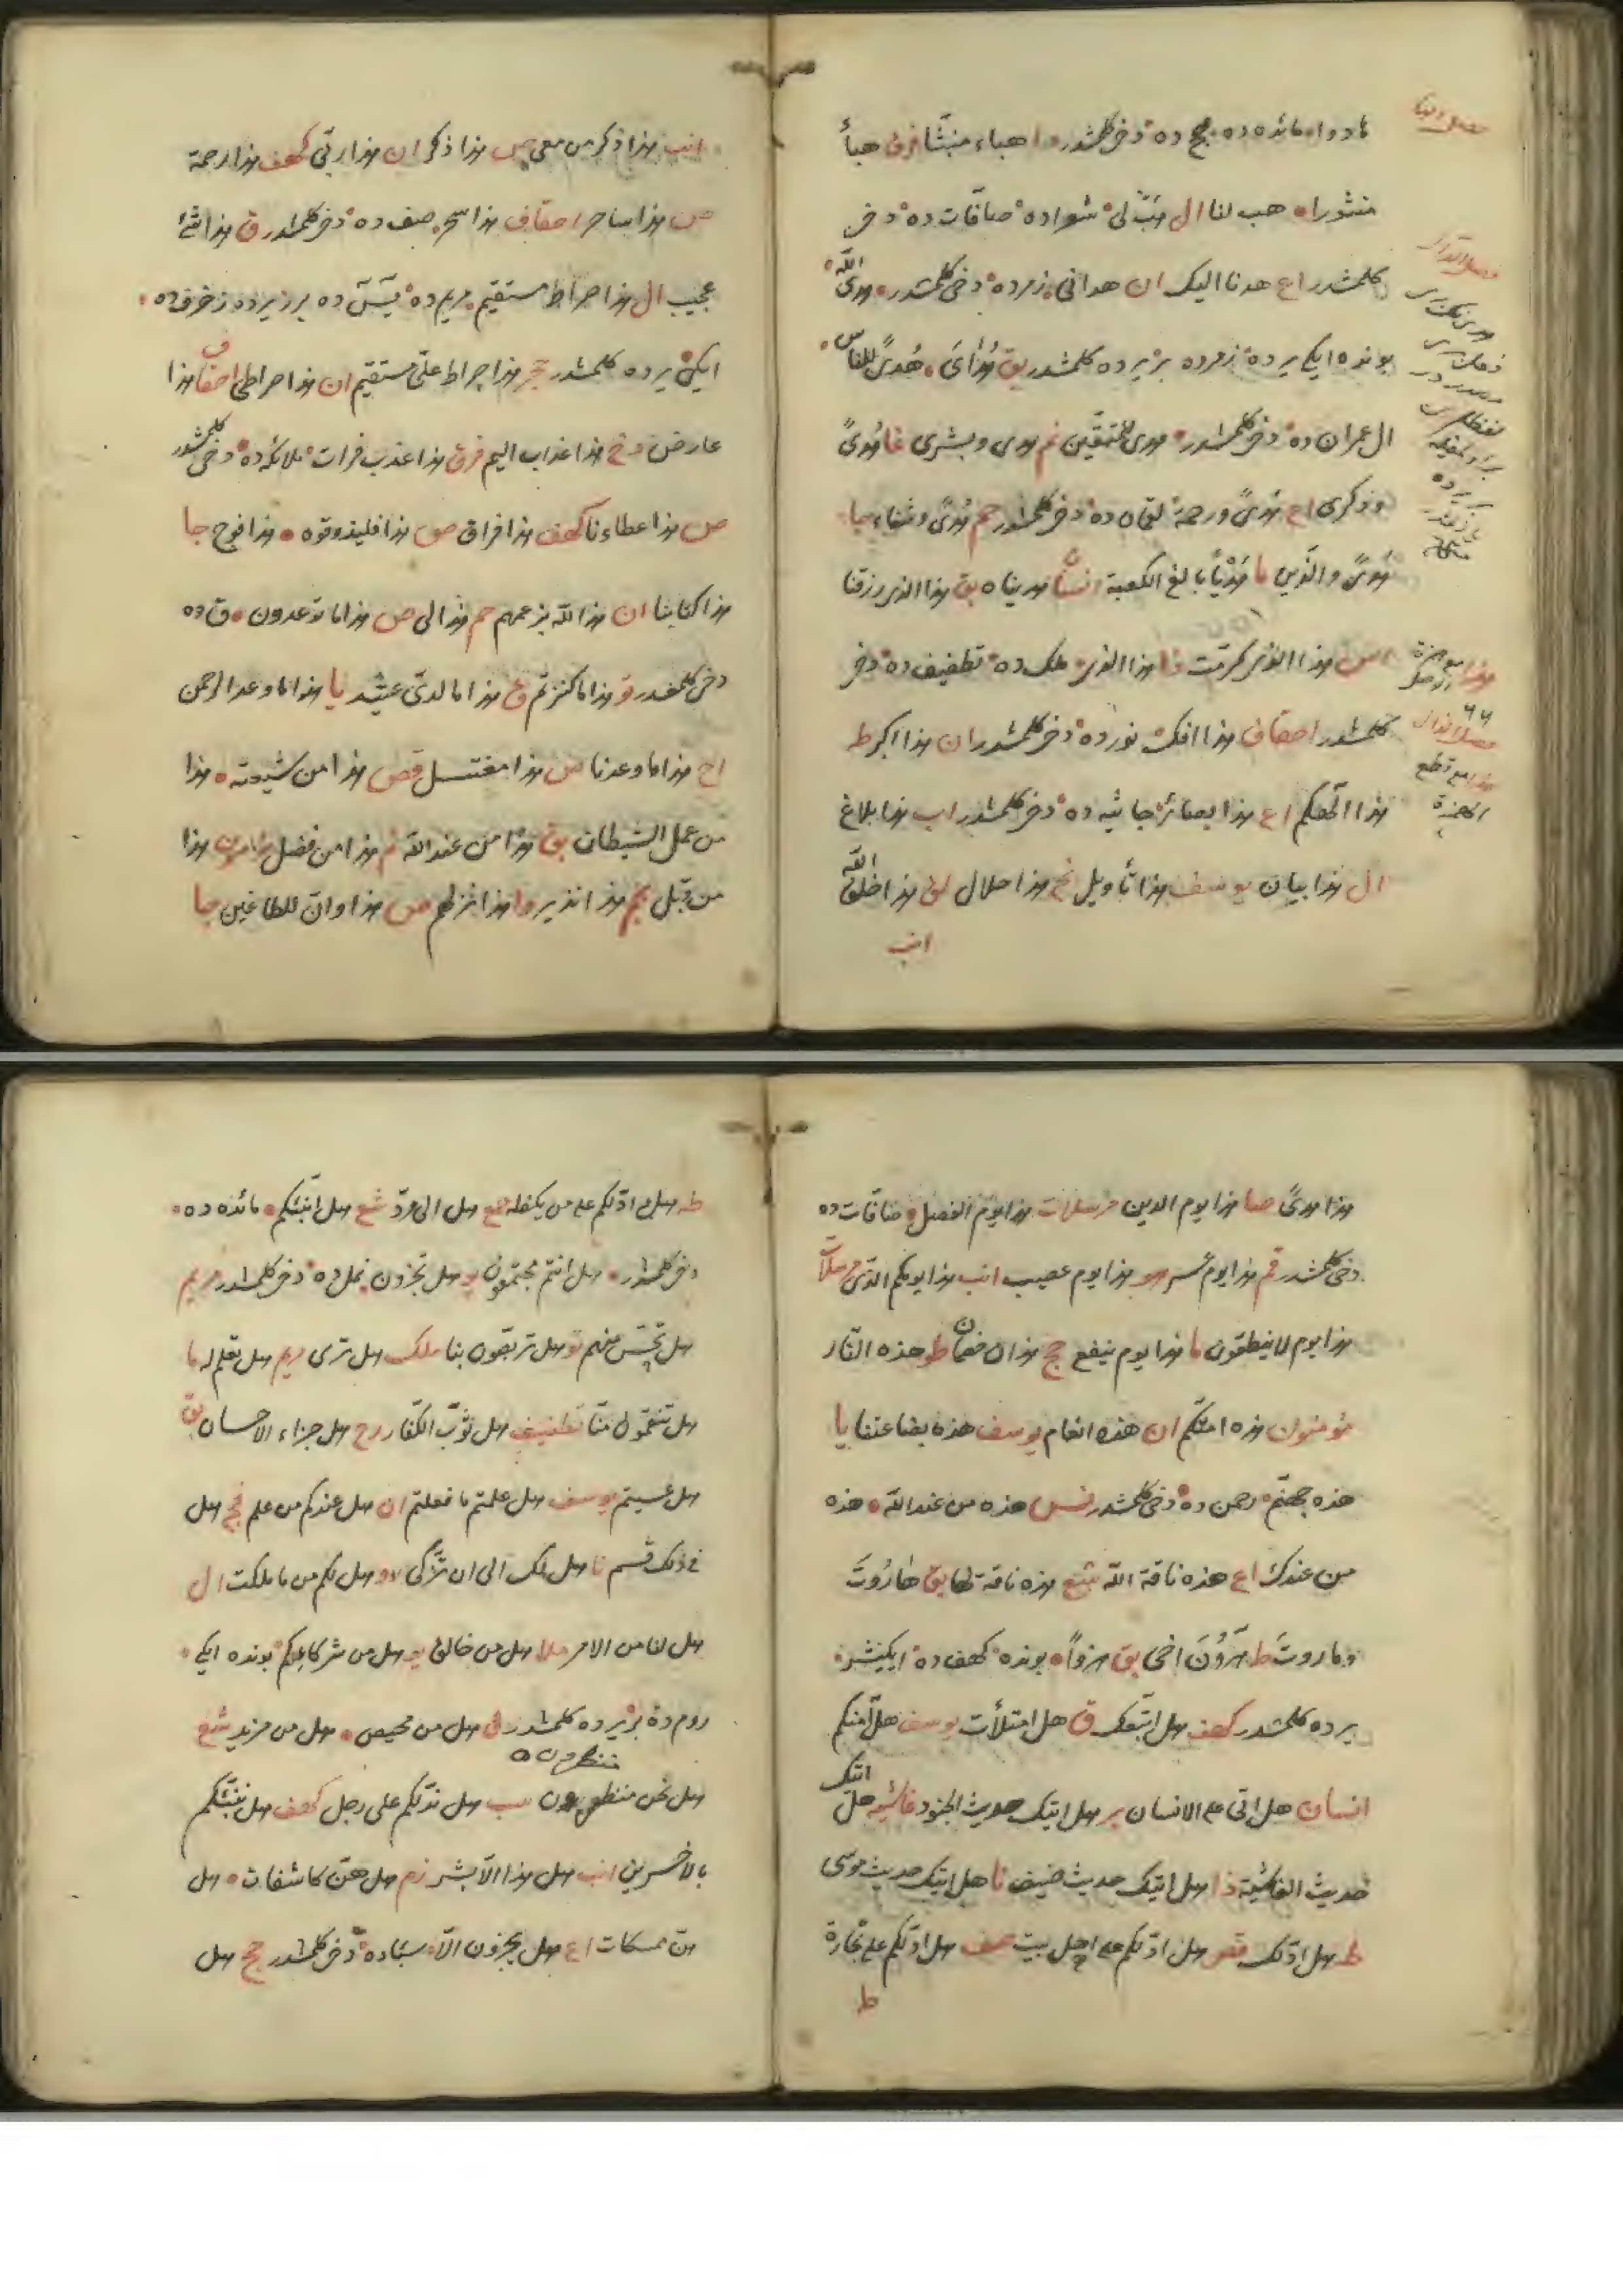 نادوا مائده ده حج ده دخی کلمشدر وا هباء منبثا فرق هباً
منثورا هب لنا ال هب لی شعرا ده صافات ده دخی
کلمشدر اع هدنا الیک ان هدانی زمر ده دخی کلمشدر هدی الله
بونده ایکی یرده زمر ده بر یرده کلمشدر بق هدای هدی للناس
ال عمران ده دخی کلمشدر هدی للمتقین نم هدی وبشری غا هدی
وذکری اع هدی ورحمة لقمان ده دخی کلمشدر حم هدی وشفاء جا
هدی والذین ما هدیا بالغ الکعبة نسا هدیناه بق هذا الذی رزقنا
اس هذا الذی کرمت فا هذا الذی ملک ده تطفیف ده دخی
کلمشدر احقاف هذا افک نور ده دخی کلمشدر ان هذا اکبر ط
هذا الهکم اع هذا بصائر جاثیه ده دخی کلمشدر اب هذا بلاغ
ال هذا بیان یوسف هذا تأویل نح هذا حلال لق هذا خلق الله
انب
هذا
مع همزة
الوصل
هذا مع قطع
الهمزة
انب هذا ذکر من معی ص هذا ذکر ان هذا ربی کهف هذا رحمة
ص هذا ساحر احقاف هذا سحر صف ده دخی کلمشدر ق هذا شئ
عجیب ال هذا صراط مستقیم مریم ده یس ده برر یرده زخرف ده
ایکی یرده کلمشدر حجر هذا صراط علی مستقیم ان هذا صراطی احقاف هذا
عارض دخ هذا عذاب الیم فرق هذا عذب فرات ملائکه ده دخی کلمشدر
ص هذا عطاءنا کهف هذا فراق ص هذا فلیذوقوه هذا فوج جا
هذا کتابنا ان هذا لله بزعمهم حم هذا لی ص هذا ما توعدون ق ده
دخی کلمشدر تو هذا ما کنزتم ق هذا ما لدی عتید یا هذا ما وعد الرحمن
اح هذا ما وعدنا ص هذا مغتسل قص هذا من شیعته هذا
من عمل الشیطان بق هذا من عند الله نم هذا من فضل هذا
من قبل نجم هذا نذیر وا هذا نزلهم ص هذا وان للطاغین جا
هذا هدی صا هذا یوم الدین مرسلات هذا یوم الفصل صافات ده
دخی کلمشدر قم هذا یوم عسر هو هذا یوم عصیب انب هذا یومکم الذی مرسلات
هذا یوم لا ینطقون ما هذا یوم ینفع حج هذان خصمان طو هذه النار
مؤمنون هذه امتکم ان هذه انعام یوسف هذه بضاعتنا یا
هذه جهنم رحمن ده دخی کلمشدر نس هذه من عند الله هذه
من عندک اع هذه ناقة الله شع هذه ناقة لها بق هاروت
وماروت ط هرون اخی بق هزوا بونده کهف ده ایکیشر
یرده کلمشدر کهف هل اتبعک ق هل امتلأت یوسف هل آمنکم
انسان هل اتی علی الانسان بر هل اتیک حدیث الجنود غاشیه هل اتیک
حدیث الغاشیة ذا هل اتیک حدیث ضیف نا هل اتیک حدیث موسی
طه هل ادلک قص هل ادلکم علی اهل بیت صف هل ادلکم علی تجارة
ط
طه هل ادلکم علی من یکفله جمع هل الی مرد شع هل انبئکم مائده ده
دخی کلمشدر هل انتم مجتمعون یو هل تجزون نمل ده دخی کلمشدر مریم
هل تحس منهم تو هل تربصون بنا ملک هل تری مریم هل تعلم له ما
هل تنقمون منا تطفیف هل ثوب الکفار رح هل جزاء الاحسان بق
هل عسیتم یوسف هل علمتم ما فعلتم ان هل عندکم من علم فج هل
فی ذلک قسم نا هل لک الی ان تزکی رو هل لکم من ما ملکت ال
هل لنا من الامر ملا هل من خالق یو هل من شرکائکم بونده ایکی
روم ده بر یرده کلمشدر ق هل من محیص هل من مزید شع
هل نحن منظرون سب هل ندلکم علی رجل کهف هل ننبئکم
منظرون
بالاخسرین انب هل هذا الا بشر زم هل هن کاشفات هل
هن ممسکات اع هل یجزون الا سبا ده دخی کلمشدر حج هل